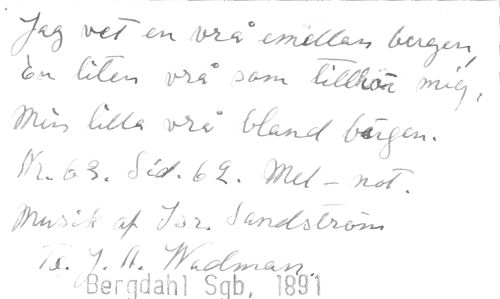 Jag vet en vrå emellan bergen,
En liten vrå som tillhör mig,
Min lilla vrå bland bergen.
Nr. 63. Sid. 62. Mel-not.
Musik af Isr. Sandström
Te. J. A. Wadman.
Bergdahl Sgb, 1891